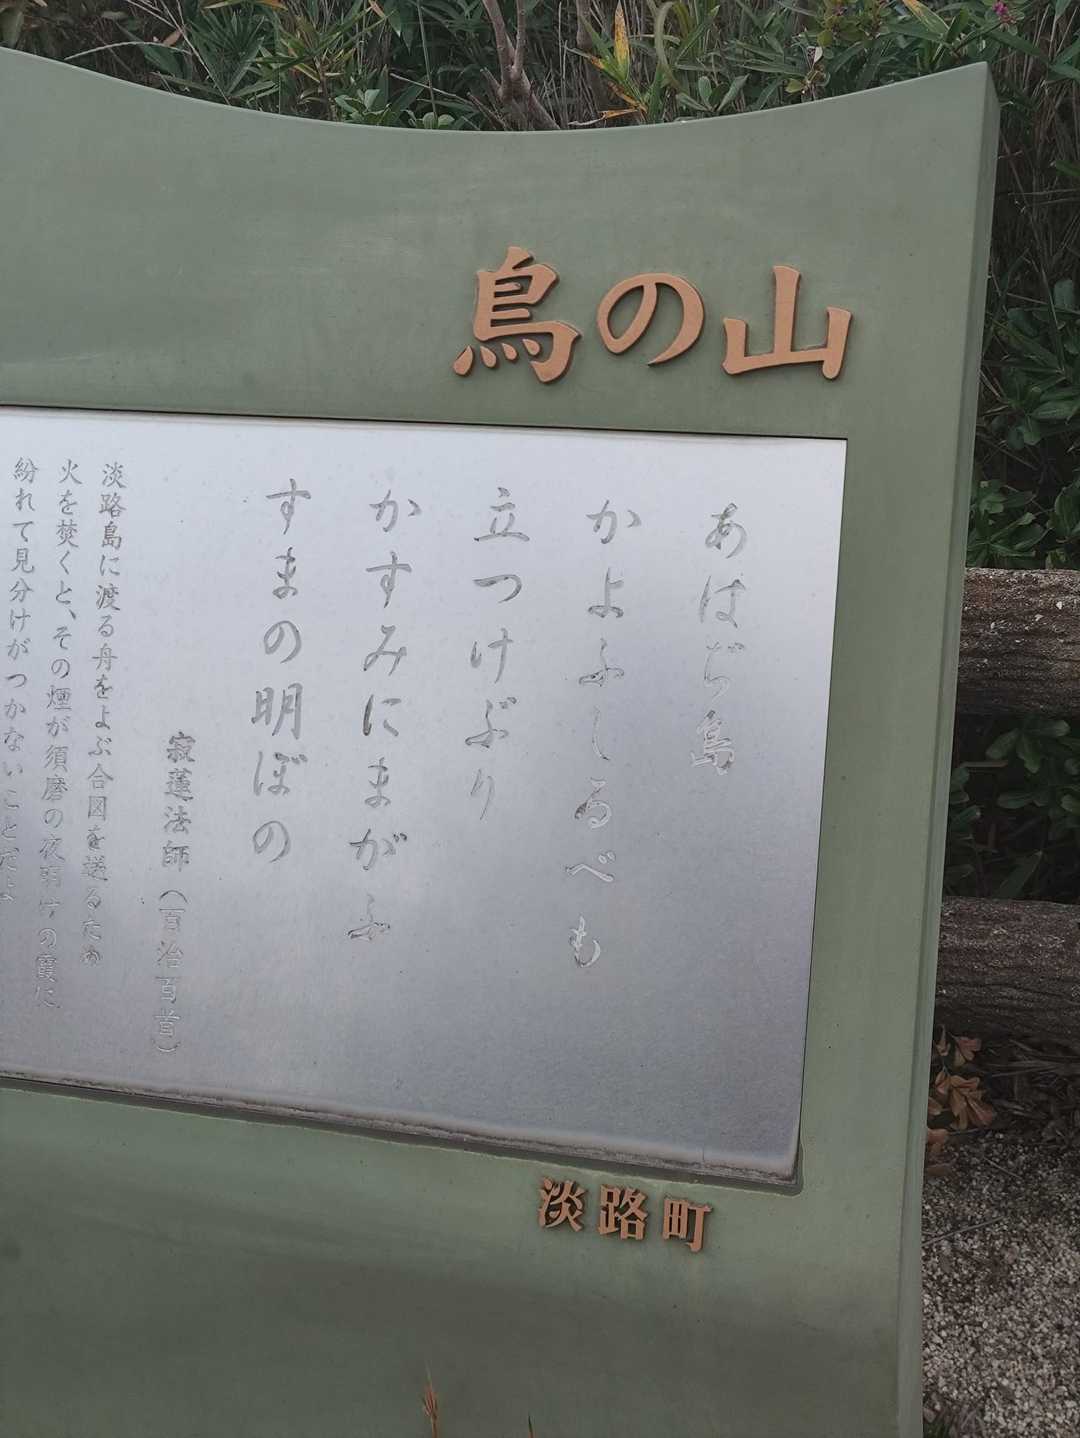 鳥の山
あはぢ島
かよふしるべも
立つけぶり
かすみにまがふ
すまの明ぼの
寂蓮法師（百治百首）
淡路島に渡る舟をよぶ合図を送るため
火を焚くと、その煙が須磨の夜明けの霞に
紛れて見分けがつかないことだよ
淡路町